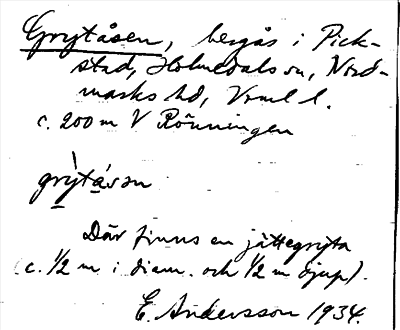 Grytåsen, bergås i Pick-
stad, Holmedals sn, Nord-
marks hd, Vrml l.
c. 200 m V Rönningen
grỳtásən
Där finns en jättegryta
(c. 1/2 m i diam. och 1/2 m djup).
E. Andersson 1934.